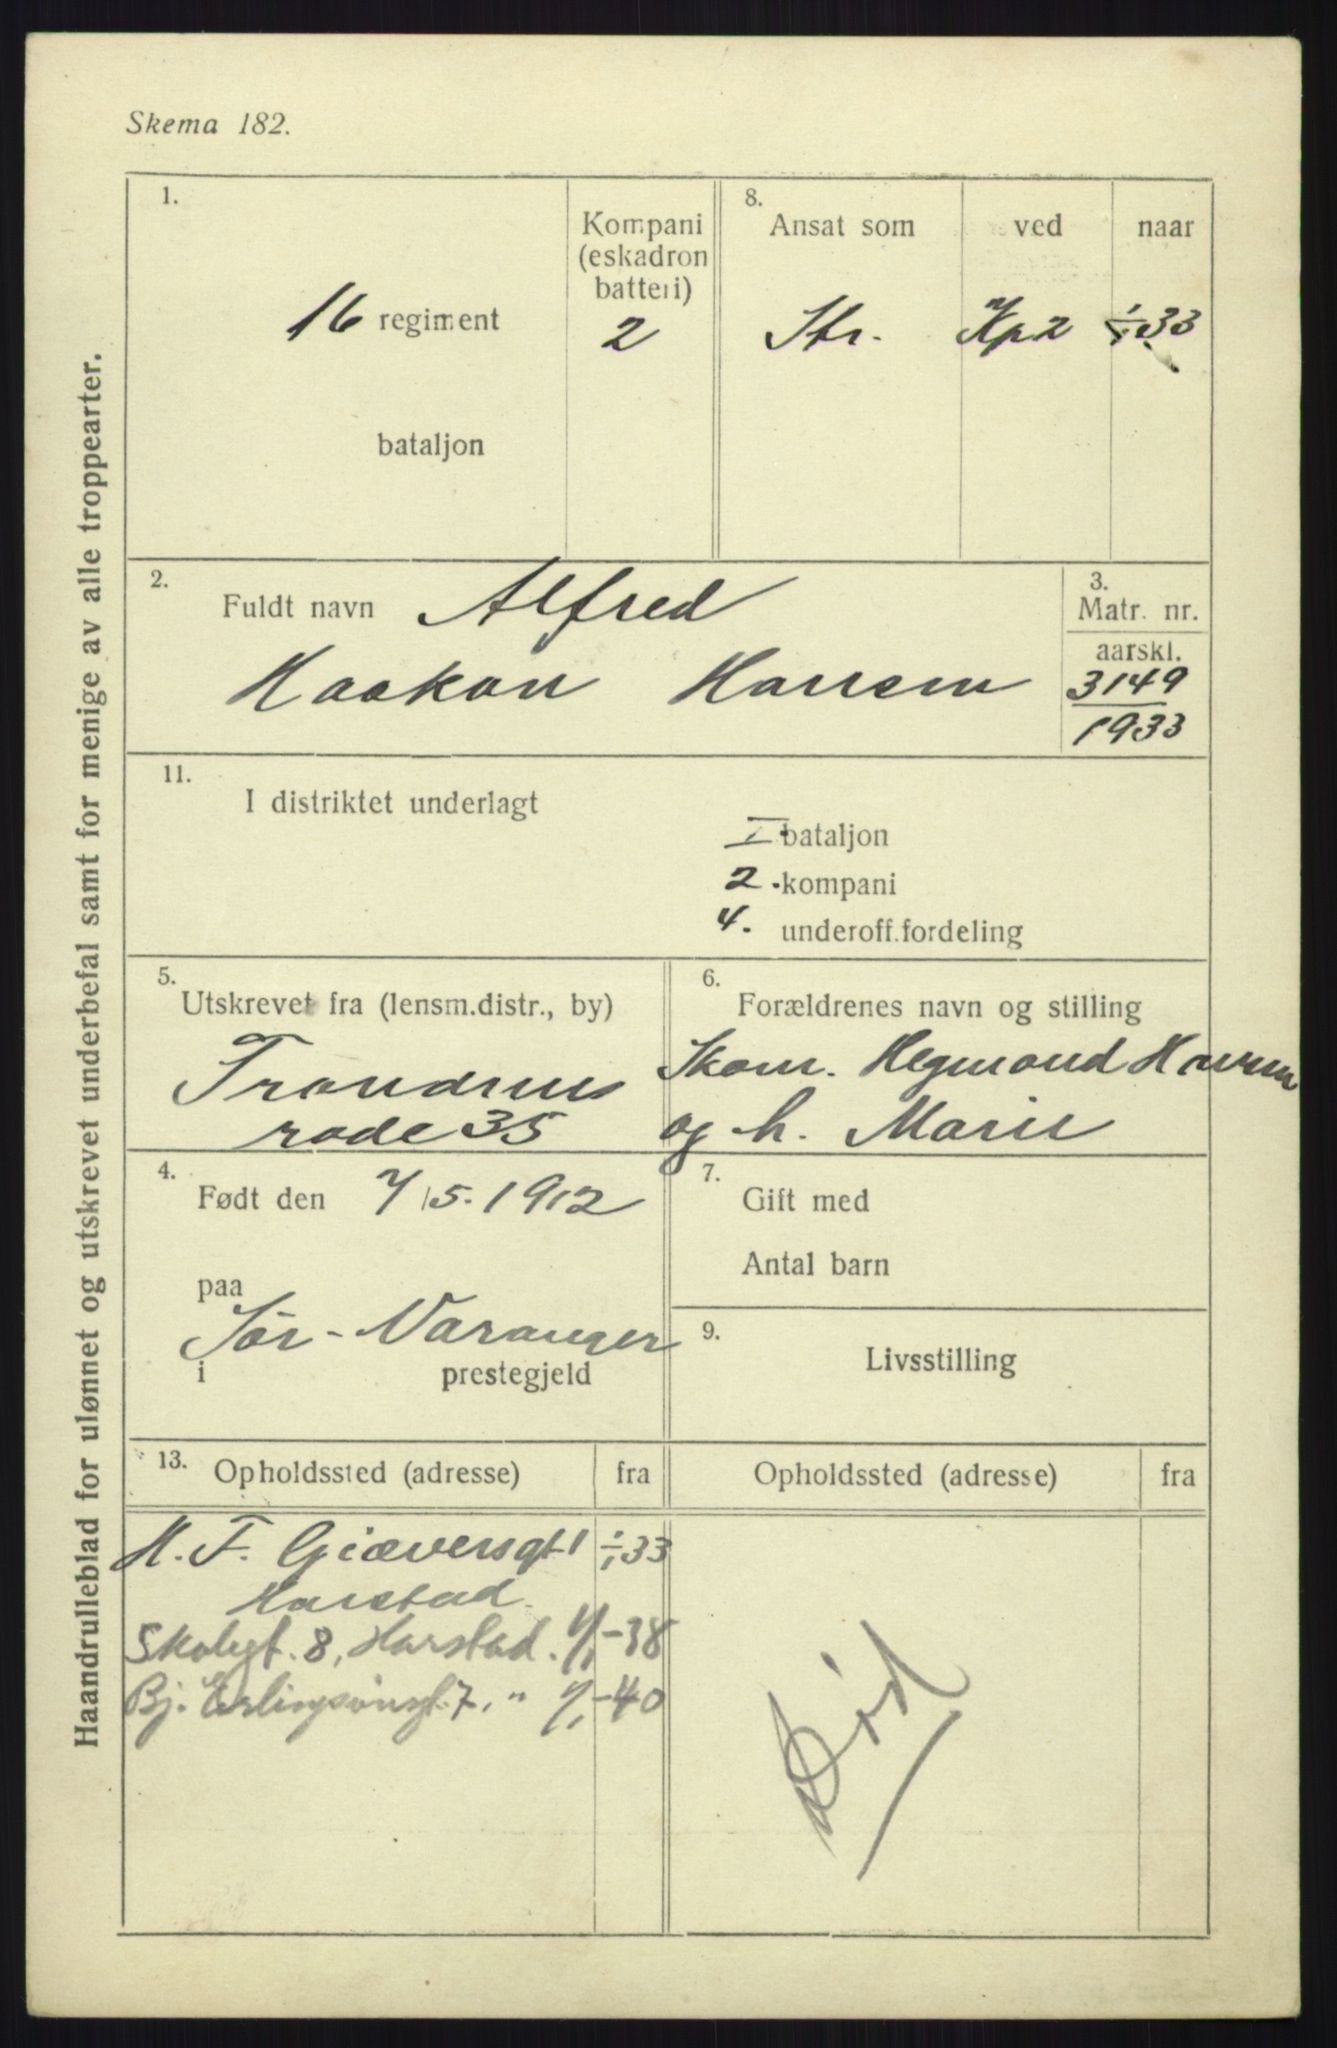 Skema 182.
Haandrulleblad for ulønnet og utskrevet underbefal samt for menige av alle troppearter.
1.
16 regiment
bataljon
Kompani
(eskadron
batteri)
2
8.
Ansat som ved naar
Str. Kp2 1/1 33
2.
Fuldt navn Alfred
Haakon Hansen
3.
Matr. nr.
aarskl.
3149
1933
11.
I distriktet underlagt
I. bataljon
2. kompani
4. underoff.fordeling
5.
Utskrevet fra (lensm.distr., by)
Trondenes
rode 35
6.
Forældrenes navn og stilling
Skom. Hansen
og h. Marie
4.
Født den 7/5-1912
paa
Sør-Varanger
i prestegjeld
7.
Gift med
Antal barn
9.
Livsstilling
13.
Opholdssted (adresse) fra
H. F. Giæversgt 1 1/1 33
Harstad
Skolegt. 8, Harstad. 1/1-38
Bj. Erlingsønsgt. 7. " 1/1-40
Opholdssted (adresse) fra
Død